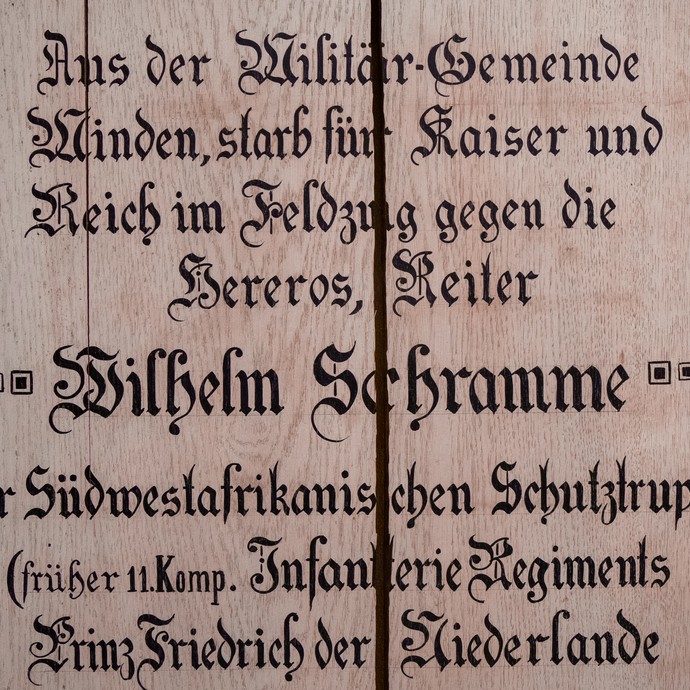 Aus der Militär-Gemeinde
Minden, starb für Kaiser und
Reich im Feldzug gegen die
Hereros, Reiter
Wilhelm Schramme
r Südwestafrikanischen Schutztrup
(früher 11.Komp. Infanterie Regiments
Prinz Friedrich der Niederlande